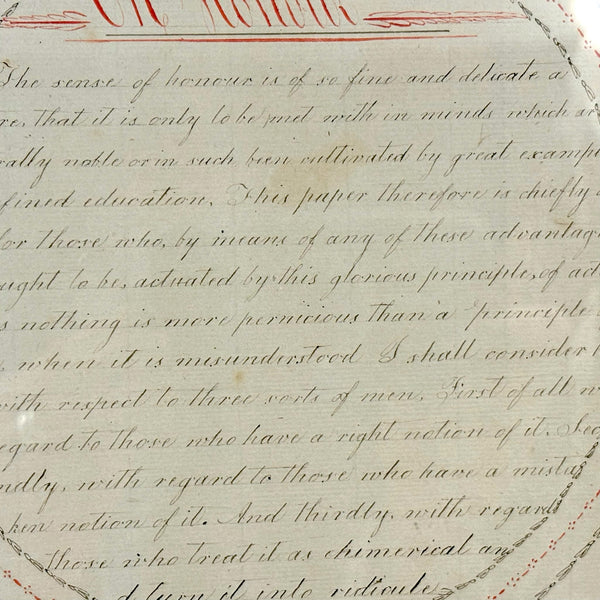 On Honour
The sense of honour is of so fine and delicate a
re, that it is only to be met with in minds which ar
rally noble or in such been cultivated by great exampl
fined education. This paper therefore is chiefly d
for those who, by means of any of these advantag
ught to be, actuated by this glorious principle, of ac
s nothing is more pernicious than a principle
, when it is misunderstood I shall consider h
with respect to three sorts of men. First of all w
egard to those who have a right notion of it. Seco
ndly, with regard to those who have a mista
ken notion of it. And thirdly, with regard
those who treat it as chimerical an
d turn it into ridicule